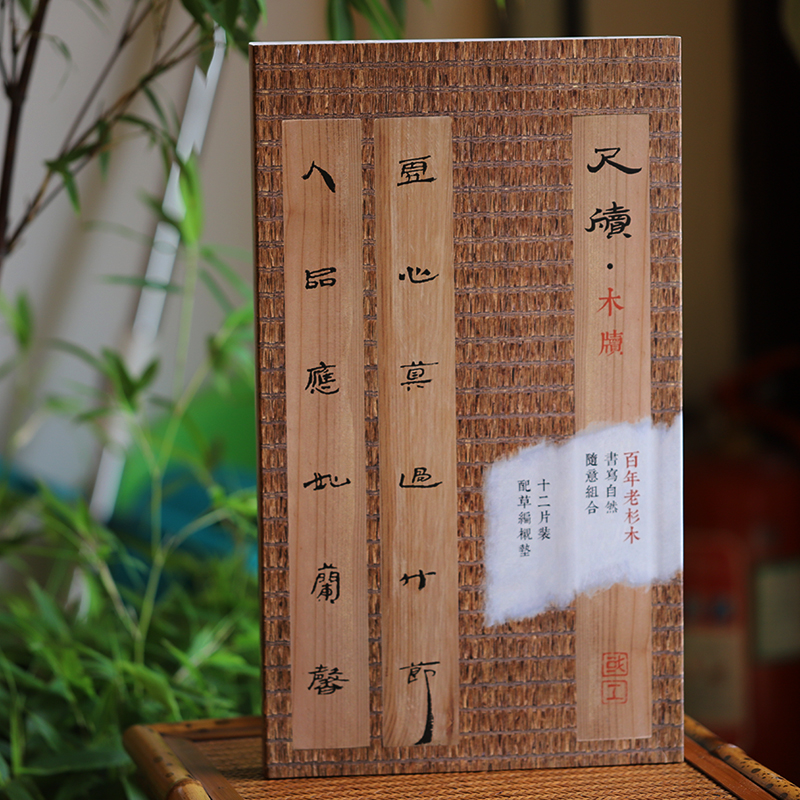 尺牘·木牘
百年老杉木
書寫自然
隨意組合
十二片裝
配草編襯墊
國工
虛心莫過竹節
人品應如蘭馨